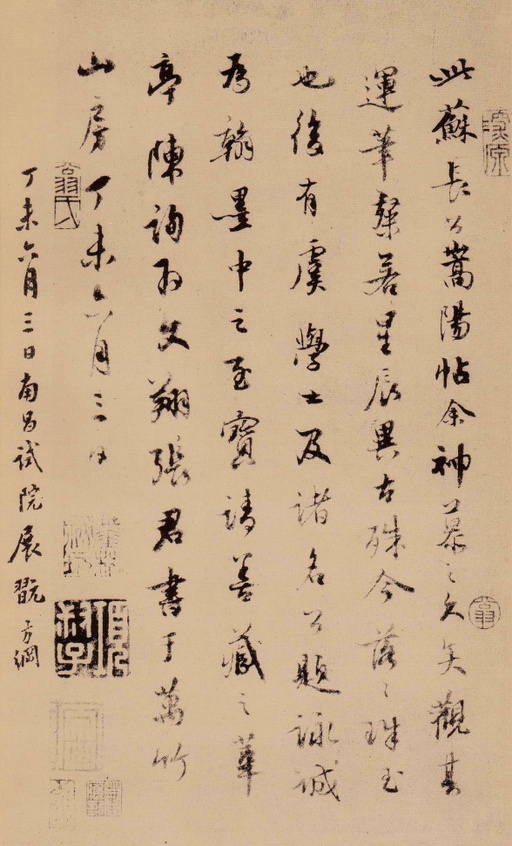 此蘇長公嵩陽帖余神慕之久矣觀其
運筆粲若星辰異古殊今落落珠玉
也後有虞學士及諸名公題詠誠
為翰墨中之至寶請善藏之華
亭陳詢為文翔張君書于萬竹
山房丁未六月三日
丁未六月三日南昌試院展翫方綱
翁氏